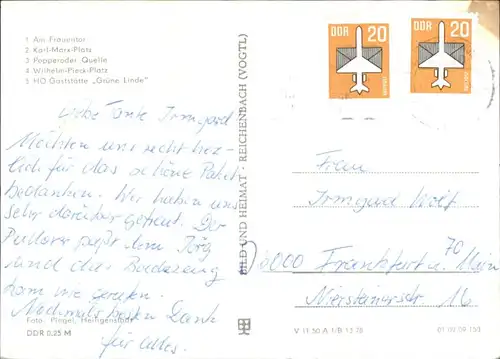 1 Am Frauentor
2 Karl-Marx-Platz
3 Popperoder Quelle
4 Wilhelm-Pieck-Platz
5 HO Gaststätte „Grüne Linde"
Liebe Tante Irmgard
Möchten uns recht herz-
lich für das schöne Paket
bedanken. Wir haben uns
sehr darüber gefreut. Der
Pullover paßt dem Jörg
und das Badezeug
kam wie gerufen.
Nochmals besten Dank
für alles.
Foto: Piegel, Heiligenstadt
DDR 0,25 M
BILD UND HEIMAT · REICHENBACH (VOGTL)
DDR 20
DDR 20
Frau
Irmgard Wolf
6000 Frankfurt a. Main 70
16
V 11 50 A 1/B